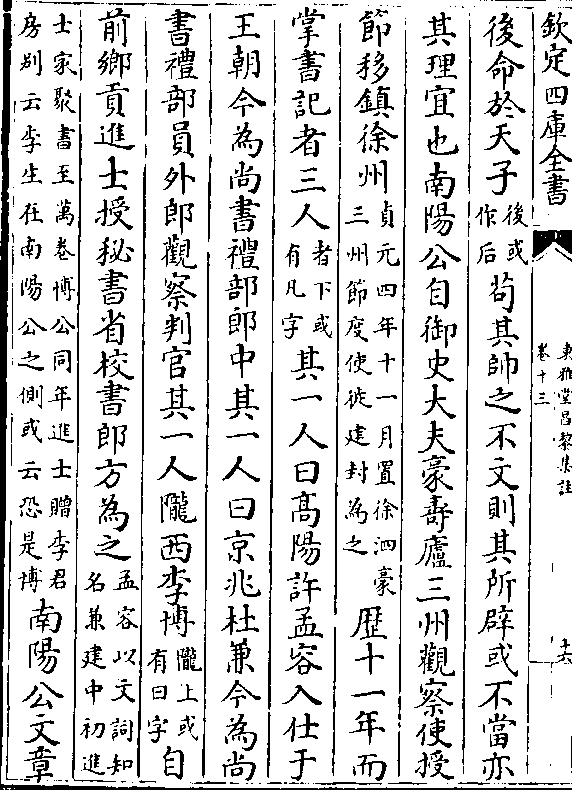 欽定四庫全書
東雅堂昌黎集註
卷十三
十六
後命於天子後或作后茍其帥之不文則其所辟或不當亦
其理宜也南陽公自御史大夫豪壽廬三州觀察使授
節移鎮徐州貞元四年十一月置徐泗豪三州節度使彼建封為之歴十一年而
掌書記者三人者下或有凡字其一人曰髙陽許孟容入仕于
王朝今為尚書禮部郎中其一人曰京兆杜兼今為尚
書禮部員外郎觀察判官其一人隴西李博隴上或有曰字自
前鄉貢進士授秘書省校書郎方為之孟容以文詞知名兼建中初進
士家聚書至萬卷博公同年進士贈李君房别云李生在南陽公之側或云恐是博南陽公文章